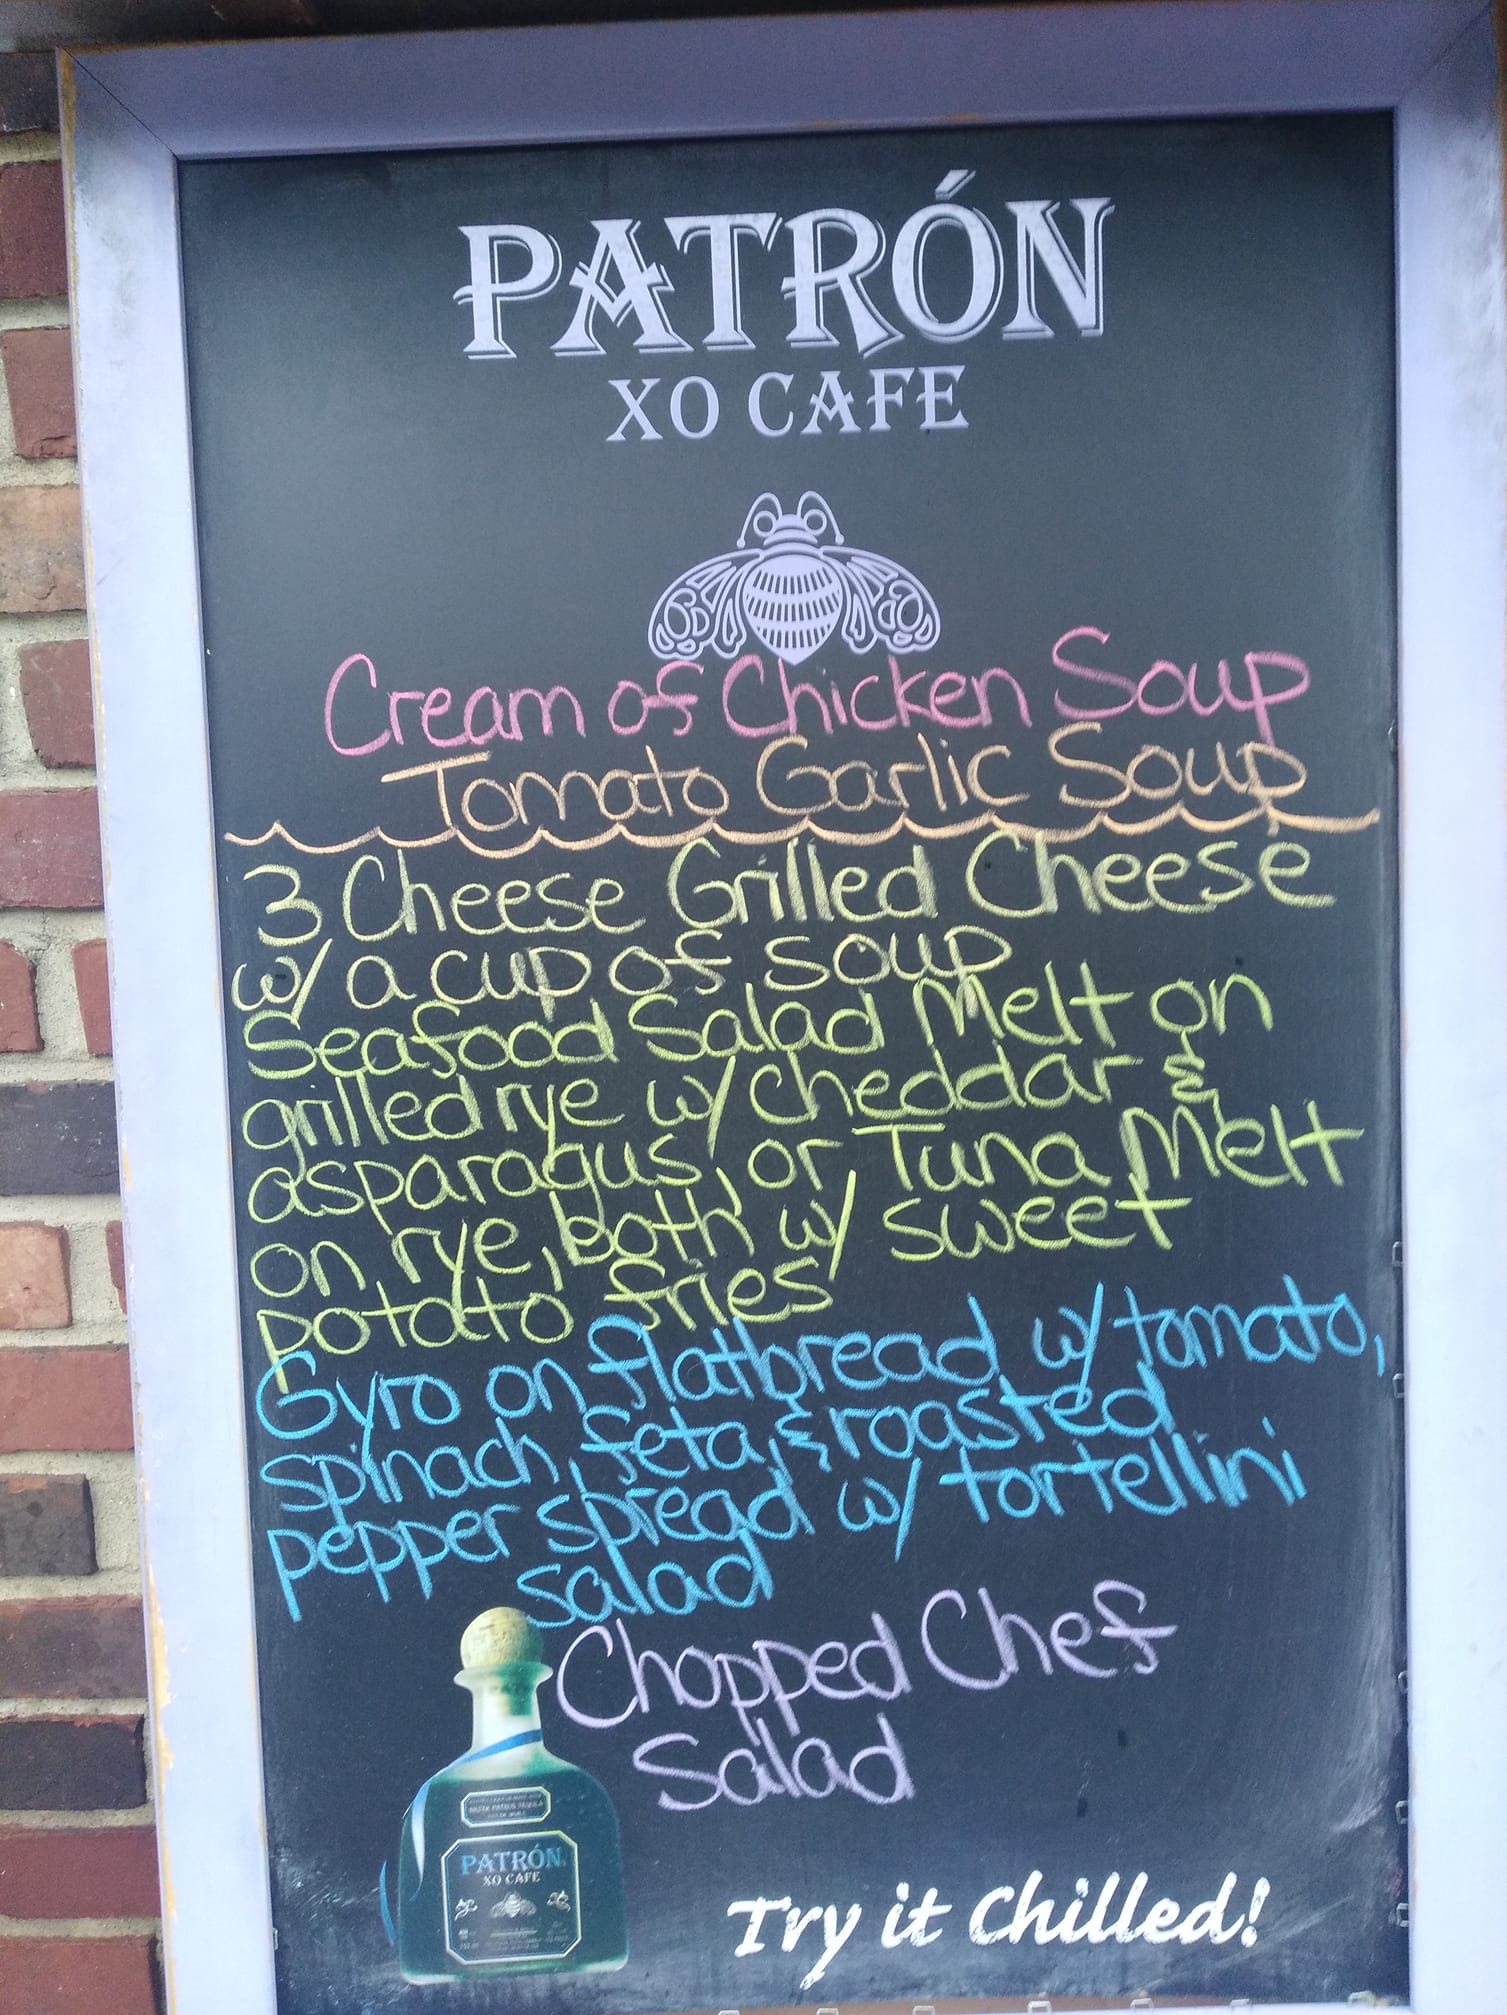 PATRÓN
XO CAFE
Cream of Chicken Soup
Tomato Garlic Soup
3 Cheese Grilled Cheese
w/ a cup of soup
Seafood Salad Melt on
grilled rye w/ cheddar &
asparagus, or Tuna Melt
on rye, both w/ sweet
potato fries
Gyro on flatbread w/ tomato,
spinach, feta, & roasted
pepper spread w/ tortellini
salad
Chopped Chef
Salad
PATRÓN
XO CAFE
Try it Chilled!